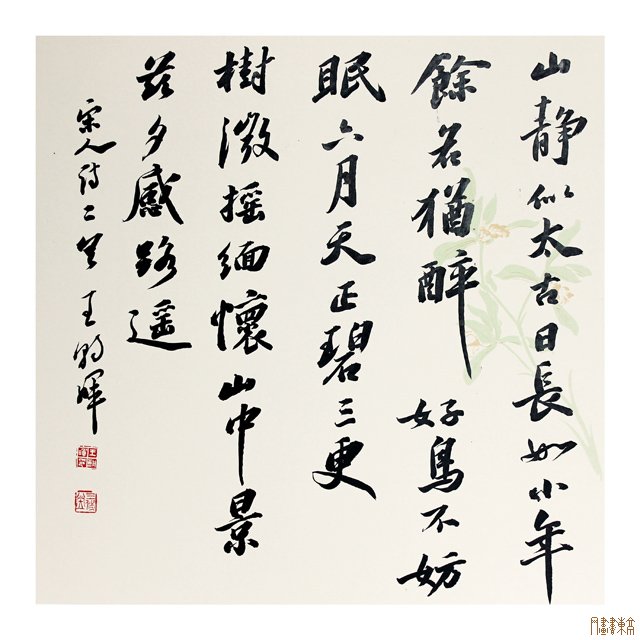 山静似太古日長如小年
餘名猶醉 好鳥不妨
眠六月天正碧三更
樹微摇緬懷山中景
兹夕感路遥
宋人诗二首 王暉